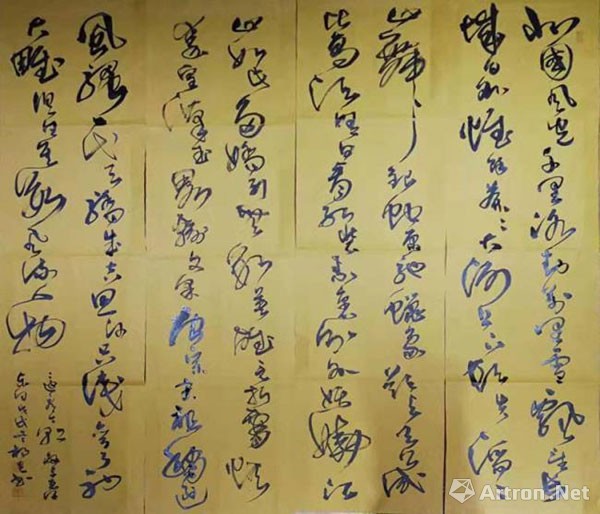 北國風光千里冰封萬里雪飄望長
城内外惟餘莽〻大河上下頓失滔〻
山舞銀蛇原馳蠟象欲與天公試
比高須晴日看紅裝素裹分外妖嬈江
山如此多嬌引無數英雄競折腰惜
秦皇漢武略輸文采唐宗宋祖稍遜
風騷一代天驕成吉思汗只識彎弓射
大雕俱往矣數風流人物
戊戌
Artron.Net